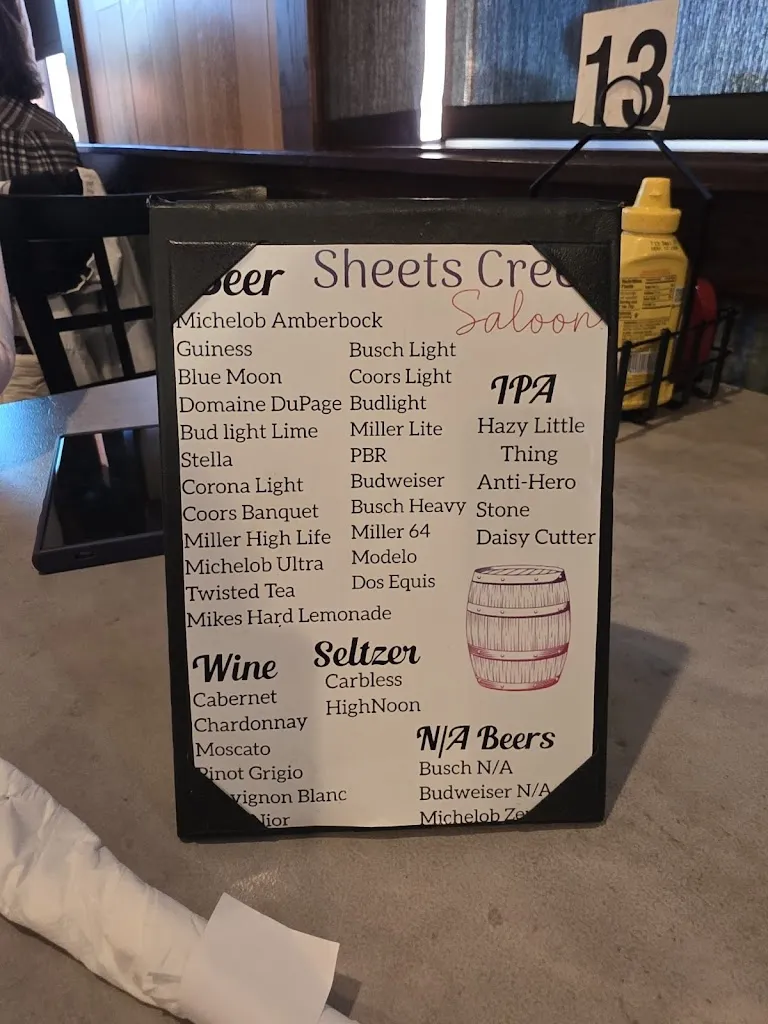 13
Beer
Sheets Cree
Saloon
Michelob Amberbock
Guiness
Blue Moon
Domaine DuPage
Bud light Lime
Stella
Corona Light
Coors Banquet
Miller High Life
Michelob Ultra
Twisted Tea
Mikes Hard Lemonade
Busch Light
Coors Light
Budlight
Miller Lite
PBR
Budweiser
Busch Heavy
Miller 64
Modelo
Dos Equis
IPA
Hazy Little
Thing
Anti-Hero
Stone
Daisy Cutter
Wine
Cabernet
Chardonnay
Moscato
Pinot Grigio
vignon Blanc
Seltzer
Carbless
HighNoon
N/A Beers
Busch N/A
Budweiser N/A
Michelob Ze